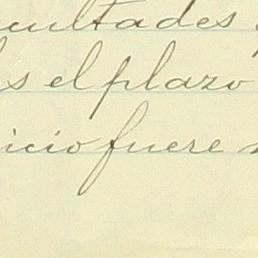 cultades
s el plazo
icio fuere